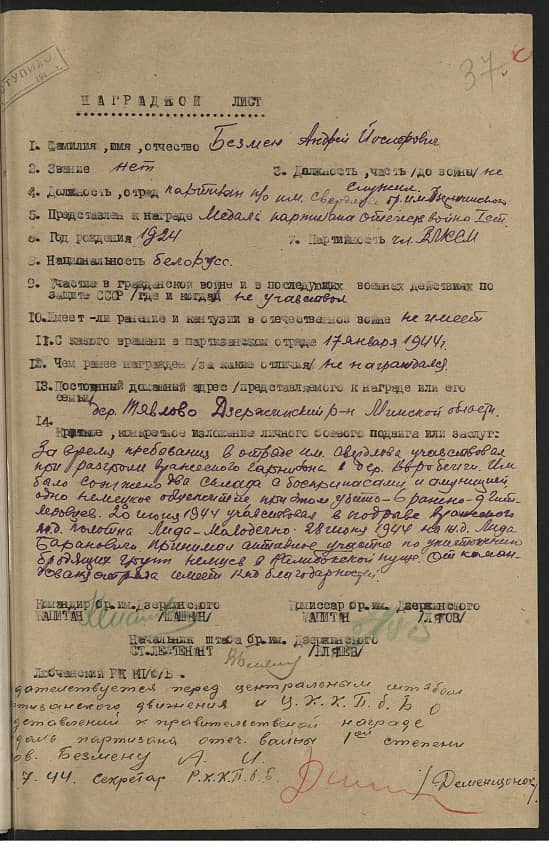 37
НАГРАДНОЙ ЛИСТ
1. Фамилия, имя, отчество Безмен Андрей Иосифович
2. Звание нет 3. Должность, часть /до войны/ не
служил.
4. Должность, отряд партизан п/о им. Свердлова бр. им. Дзержинского
5. Представлен к награде Медаль партизана отечеств войны I ст.
6. Год рождения 1924 7. Партийность чл. ВЛКСМ
8. Национальность белорусс.
9. Участие в гражданской войне и в последующих военных действиях по
защите СССР /где и когда/ не участвовал
10. Имеет-ли ранение и контузии в отечественной войне не имеет
11. С какого времени в партизанском отряде 17 января 1944 г.
12. Чем ранее награжден /за какие отличия/ не награждался.
13. Постоянный домашний адрес /представляемого к награде или его
семьи/
дер. Тявлово Дзержинский р-н Минской области.
14.
Краткое, конкретное изложение личного боевого подвига или заслуг:
За время пребывания в отряде им. участвовал
при разгроме вражеского гарнизона в дер. Воробьевичи. Им
было сожжено два склада с боеприпасами и амуницией,
одно немецкое при этом убито-6 ранено-9 гит-
леровцев. 20 июня 1944 участвовал в подрыве вражеского
ж.д. полотна Лида-Молодечно. 28 июня 1944 на ж.д. Лида
Барановичи принимал активное участие по уничтожению
бродящих групп немцев в Налибокской пуще. От коман-
дования отряда имеет ряд благодарностей.
Командир бр. им. Дзержинского Комиссар бр. им. Дзержинского
КАПИТАН /ШАШКИН/ КАПИТАН /ЛЯГОВ/
Начальник штаба бр. им. Дзержинского
СТ. ЛЕЙТЕНАНТ /ЛЯШЕВ/
Любчанский РК КП/б/Б.
дательствуется перед центральным штабом
ртизанского движения и Ц.К К.П.б.Б о
дставлении к правительственной награде
даль партизана отеч. войны 1ой степени
ов. Безмену А. И.
7.44. Секретар Р.К.К.П.б.б. /Деменщонок/